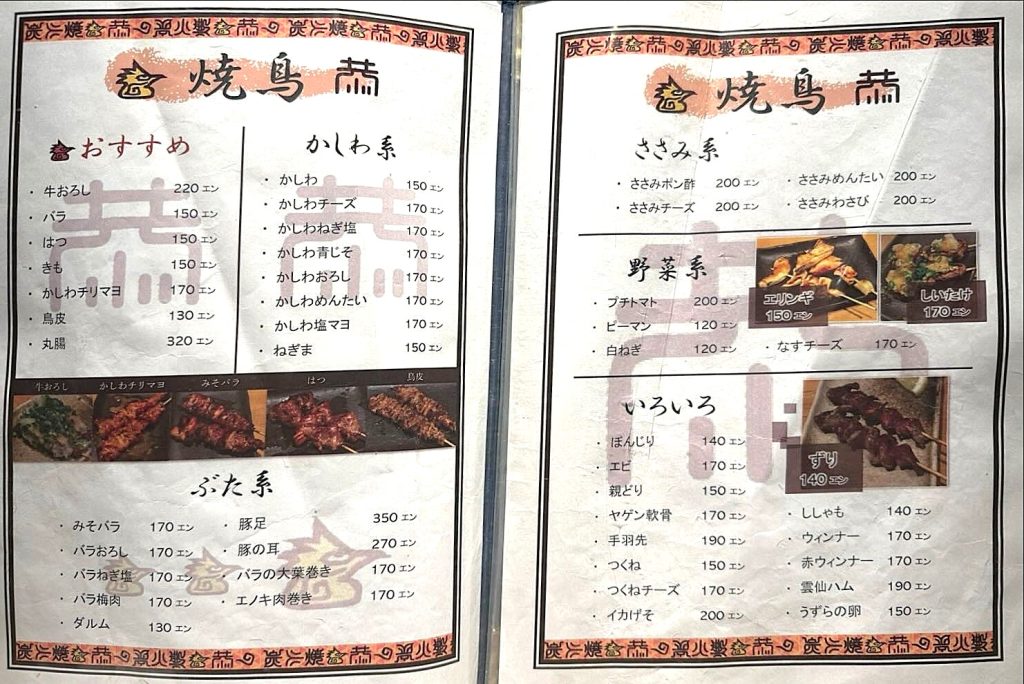 焼鳥 恭
おすすめ
・牛おろし 220エン
・バラ 150エン
・はつ 150エン
・きも 150エン
・かしわチリマヨ 170エン
・鳥皮 130エン
・丸腸 320エン
かしわ系
・かしわ 150エン
・かしわチーズ 170エン
・かしわねぎ塩 170エン
・かしわ青じそ 170エン
・かしわおろし 170エン
・かしわめんたい 170エン
・かしわ塩マヨ 170エン
・ねぎま 150エン
牛おろし かしわチリマヨ みそバラ はつ 鳥皮
ぶた系
・みそバラ 170エン
・バラおろし 170エン
・バラねぎ塩 170エン
・バラ梅肉 170エン
・ダルム 130エン
・豚足 350エン
・豚の耳 270エン
・バラの大葉巻き 170エン
・エノキ肉巻き 170エン
焼鳥 恭
ささみ系
・ささみポン酢 200エン
・ささみチーズ 200エン
・ささみめんたい 200エン
・ささみわさび 200エン
野菜系
・プチトマト 200エン
・ピーマン 120エン
・白ねぎ 120エン
・なすチーズ 170エン
エリンギ
150エン
しいたけ
170エン
いろいろ
・ぼんじり 140エン
・エビ 170エン
・親どり 150エン
・ヤゲン軟骨 170エン
・手羽先 190エン
・つくね 150エン
・つくねチーズ 170エン
・イカげそ 200エン
ずり
140エン
・ししゃも 140エン
・ウィンナー 170エン
・赤ウィンナー 170エン
・雲仙ハム 190エン
・うずらの卵 150エン